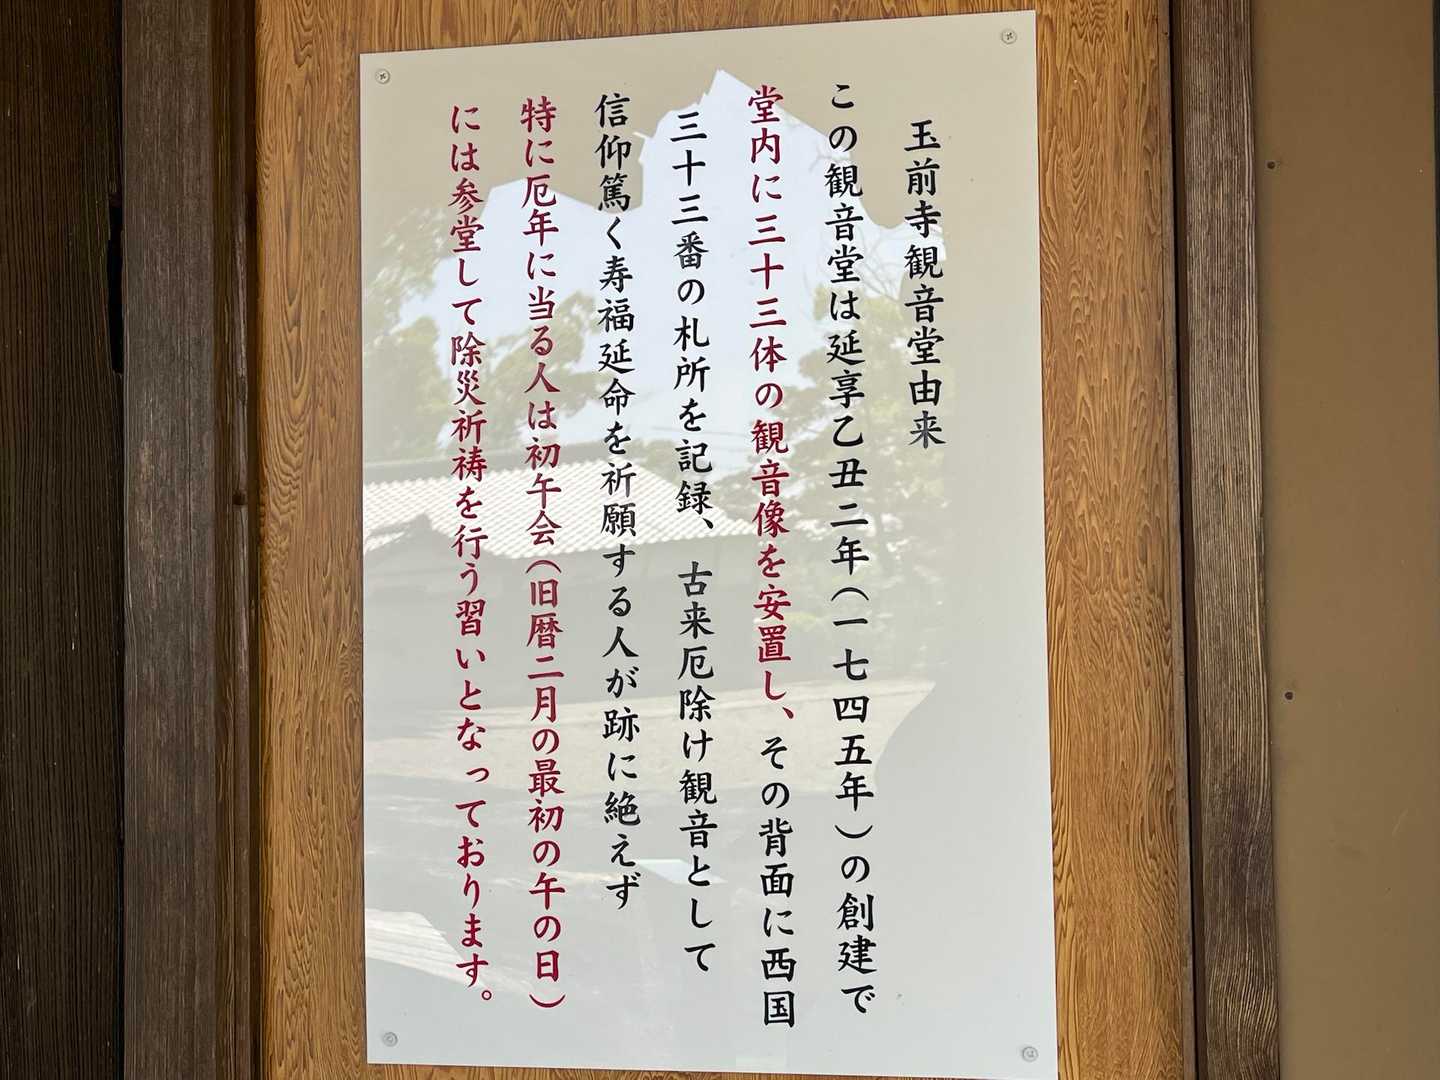 玉前寺観音堂由来
この観音堂は延享乙丑二年（一七四五年）の創建で
堂内に三十三体の観音像を安置し、その背面に西国
三十三番の札所を記録、古来厄除け観音として
信仰篤く寿福延命を祈願する人が跡に絶えず
特に厄年に当る人は初午会（旧暦二月の最初の午の日）
には参堂して除災祈祷を行う習いとなっております。